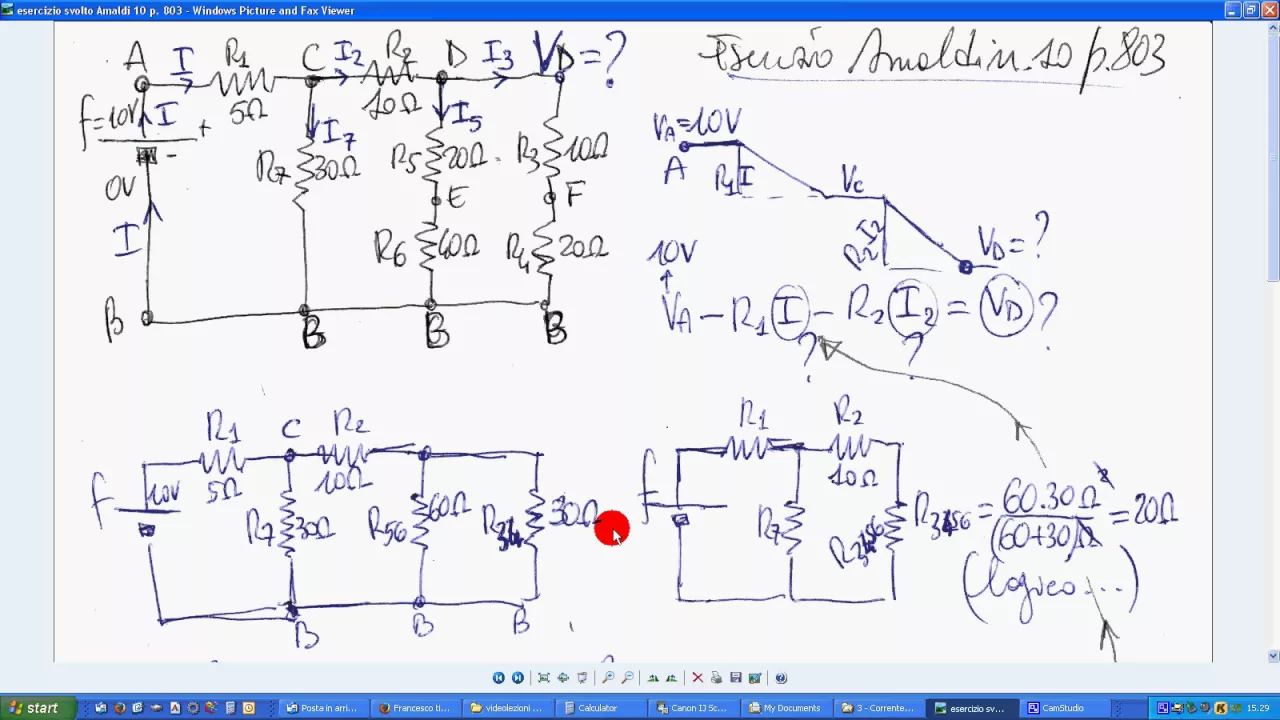 esercizio svolto Amaldi 10 p. 803 - Windows Picture and Fax Viewer
Esercizio Amaldi n. 10 p. 803
A I R1 C I2 R2 D I3 VD = ?
5Ω 10Ω
f=10V I +
-
0V
I
I7 I5
R7 30Ω R5 20Ω R3 10Ω
E F
R6 40Ω R4 20Ω
B B B B
VA=10V
A R1I VC
R2I2 VD = ?
10V
VA - R1 I - R2 I2 = VD ?
? ?
R1 C R2
5Ω 10Ω
f 10V
R7 30Ω R56 60Ω R34 30Ω
B B B
R1 R2
10Ω
f
R7 R3456
R3456 = 60.30Ω² / (60+30)Ω = 20Ω
(logico...)
start
Posta in arri...
Francesco ti...
videolezioni ...
Calculator
Canon IJ Sc...
My Documents
3 - Corrente...
esercizio sv...
CamStudio
15.29